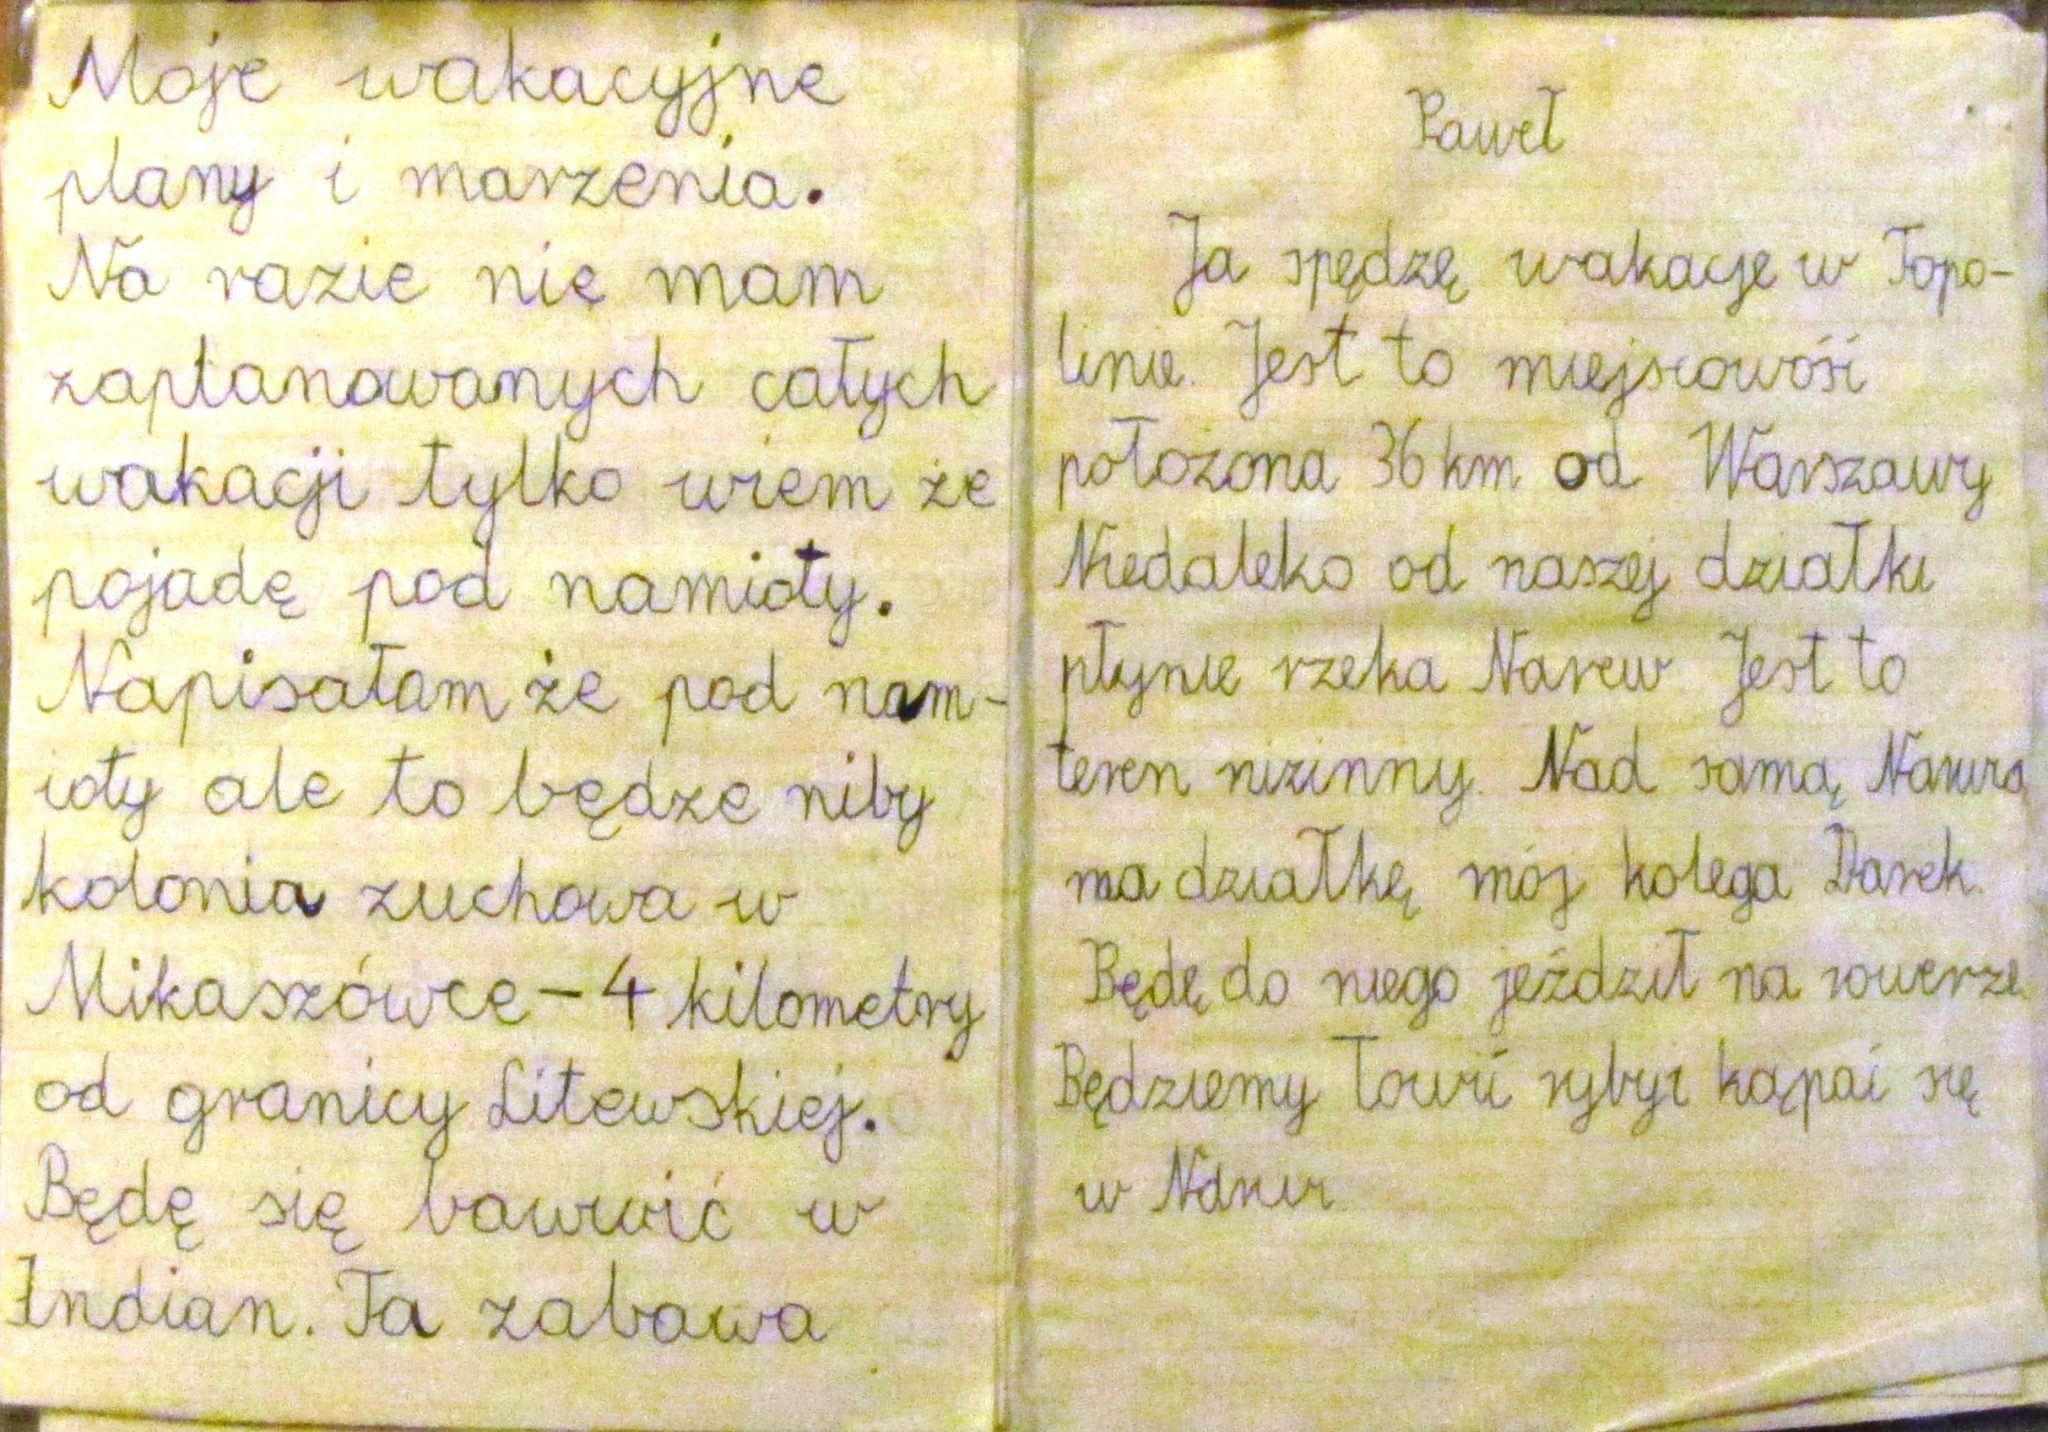 Moje wakacyjne
plany i marzenia.
Na razie nie mam
zaplanowanych całych
wakacji tylko wiem że
pojadę pod namioty.
Napisałam że pod nam-
ioty ale to będze niby
kolonia zuchowa w
Mikaszówce – 4 kilometry
od granicy Litewskiej.
Będę się bawić w
Indian. Ta zabawa
Paweł
Ja spędzę wakacje w Topo-
linie. Jest to miejscowość
położona 36 km od Warszawy
Niedaleko od naszej działki
płynie rzeka Narew Jest to
teren nizinny. Nad samą Narwią
ma działkę mój kolega Darek.
Będę do niego jeździł na rowerze
Będziemy łowić ryby i kąpać się
w